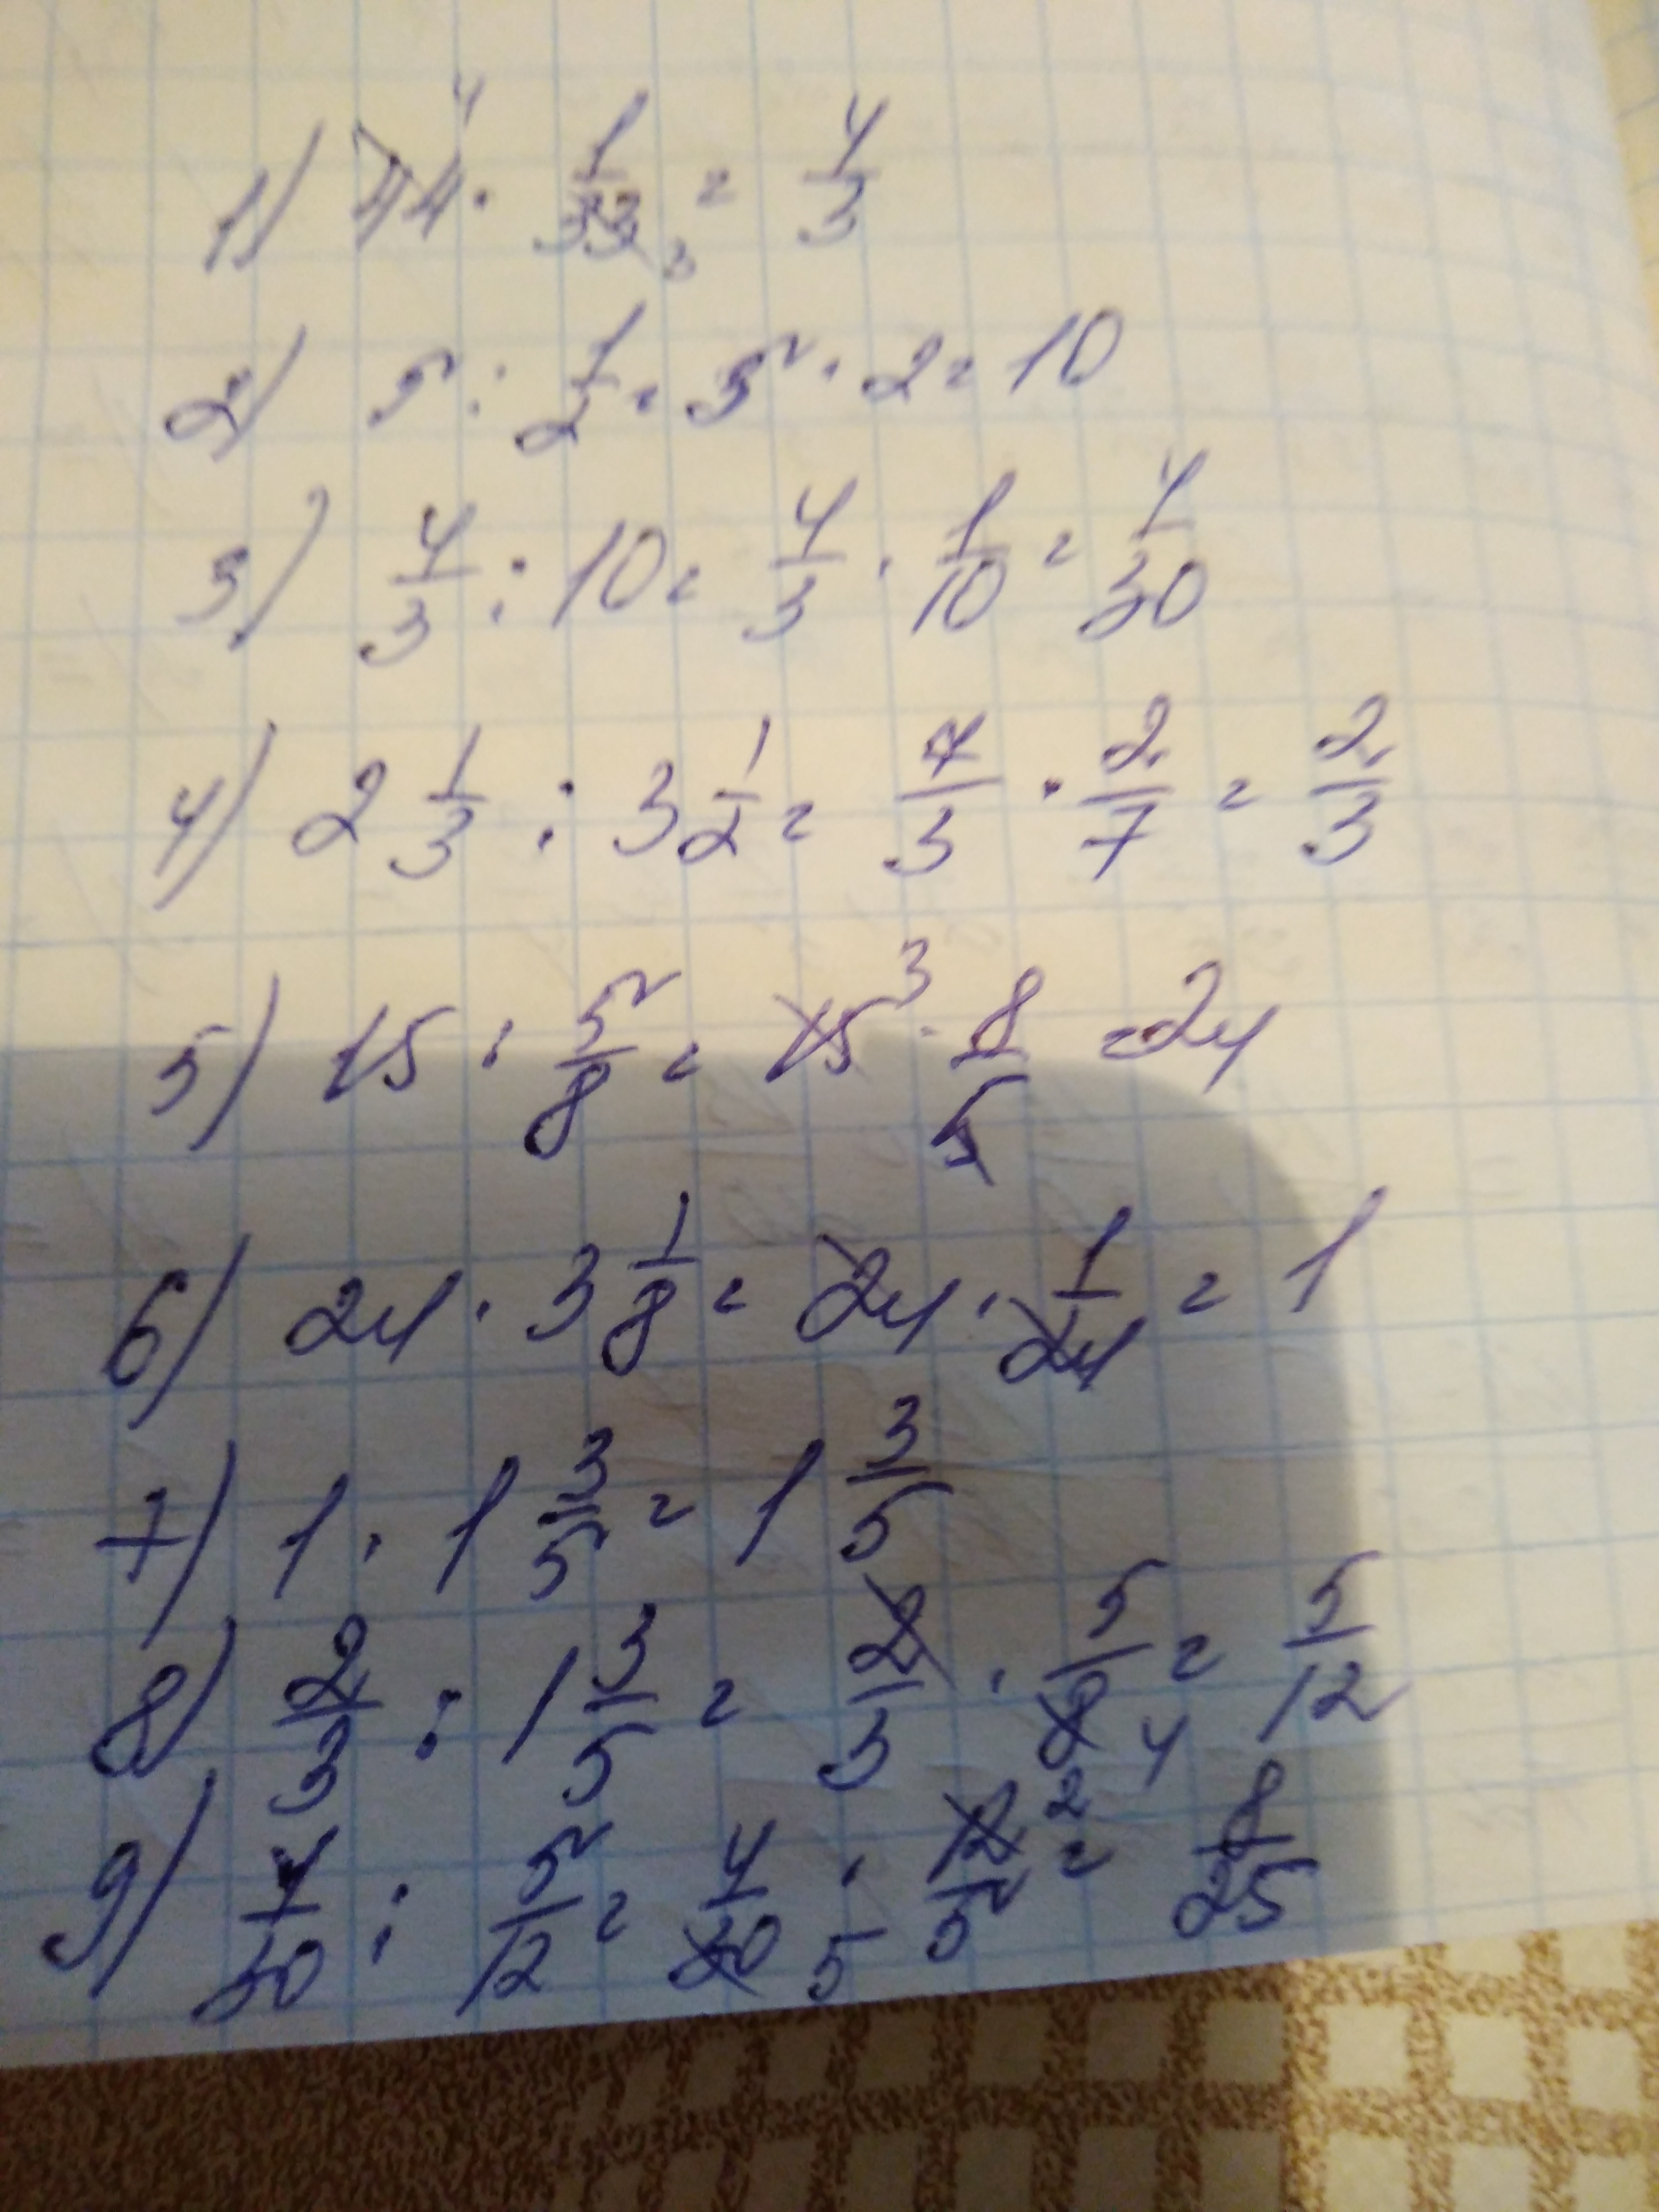 1) 44 4 · 1/33 3 = 4/3
2) 5 : 1/2 = 5 · 2 = 10
3) 4/3 : 10 = 4/3 · 1/10 = 4/30
4) 2 1/3 : 3 1/2 = 7/3 · 2/7 = 2/3
5) 15 : 5/8 = 15 3 · 8/5 = 24
6) 24 · 3 1/8 = 24 · 1/24 = 1
7) 1 · 1 3/5 = 1 3/5
8) 2/3 : 1 3/5 = 2/3 · 5/8 4 = 5/12
9) 4/30 : 5/12 = 4/30 5 · 12/5 2 = 8/25